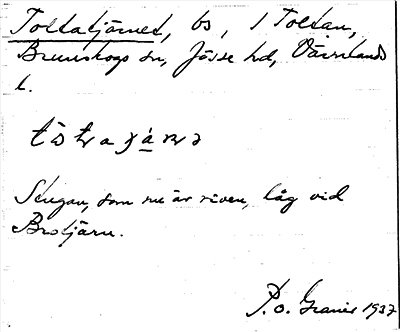 Toltatjärnet, bs, 1 Toltan,
Brunskogs sn, Jösse hd, Värmlands
l.
Stugan, som nu är riven, låg vid
Brotjärn.
P.O. Granér 1937